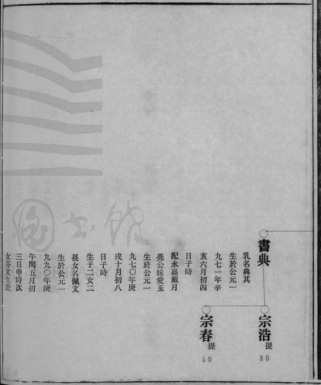 書典
乳名典其
生於公元一
九七一年辛
亥六月初四
日子時
配水嘉戴月
亮公妹愛玉
生於公元一
九七〇年庚
戌十月初八
日子時
生子二女二
長女名佩文
生於公元一
九九〇年庚
午閏五月初
三日申時次
宗浩 提
80
宗春 提
80